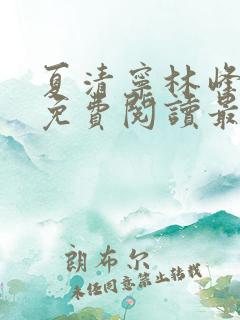 夏清寧林峰
免費閱讀最
朗布尔
未经同意禁止转载